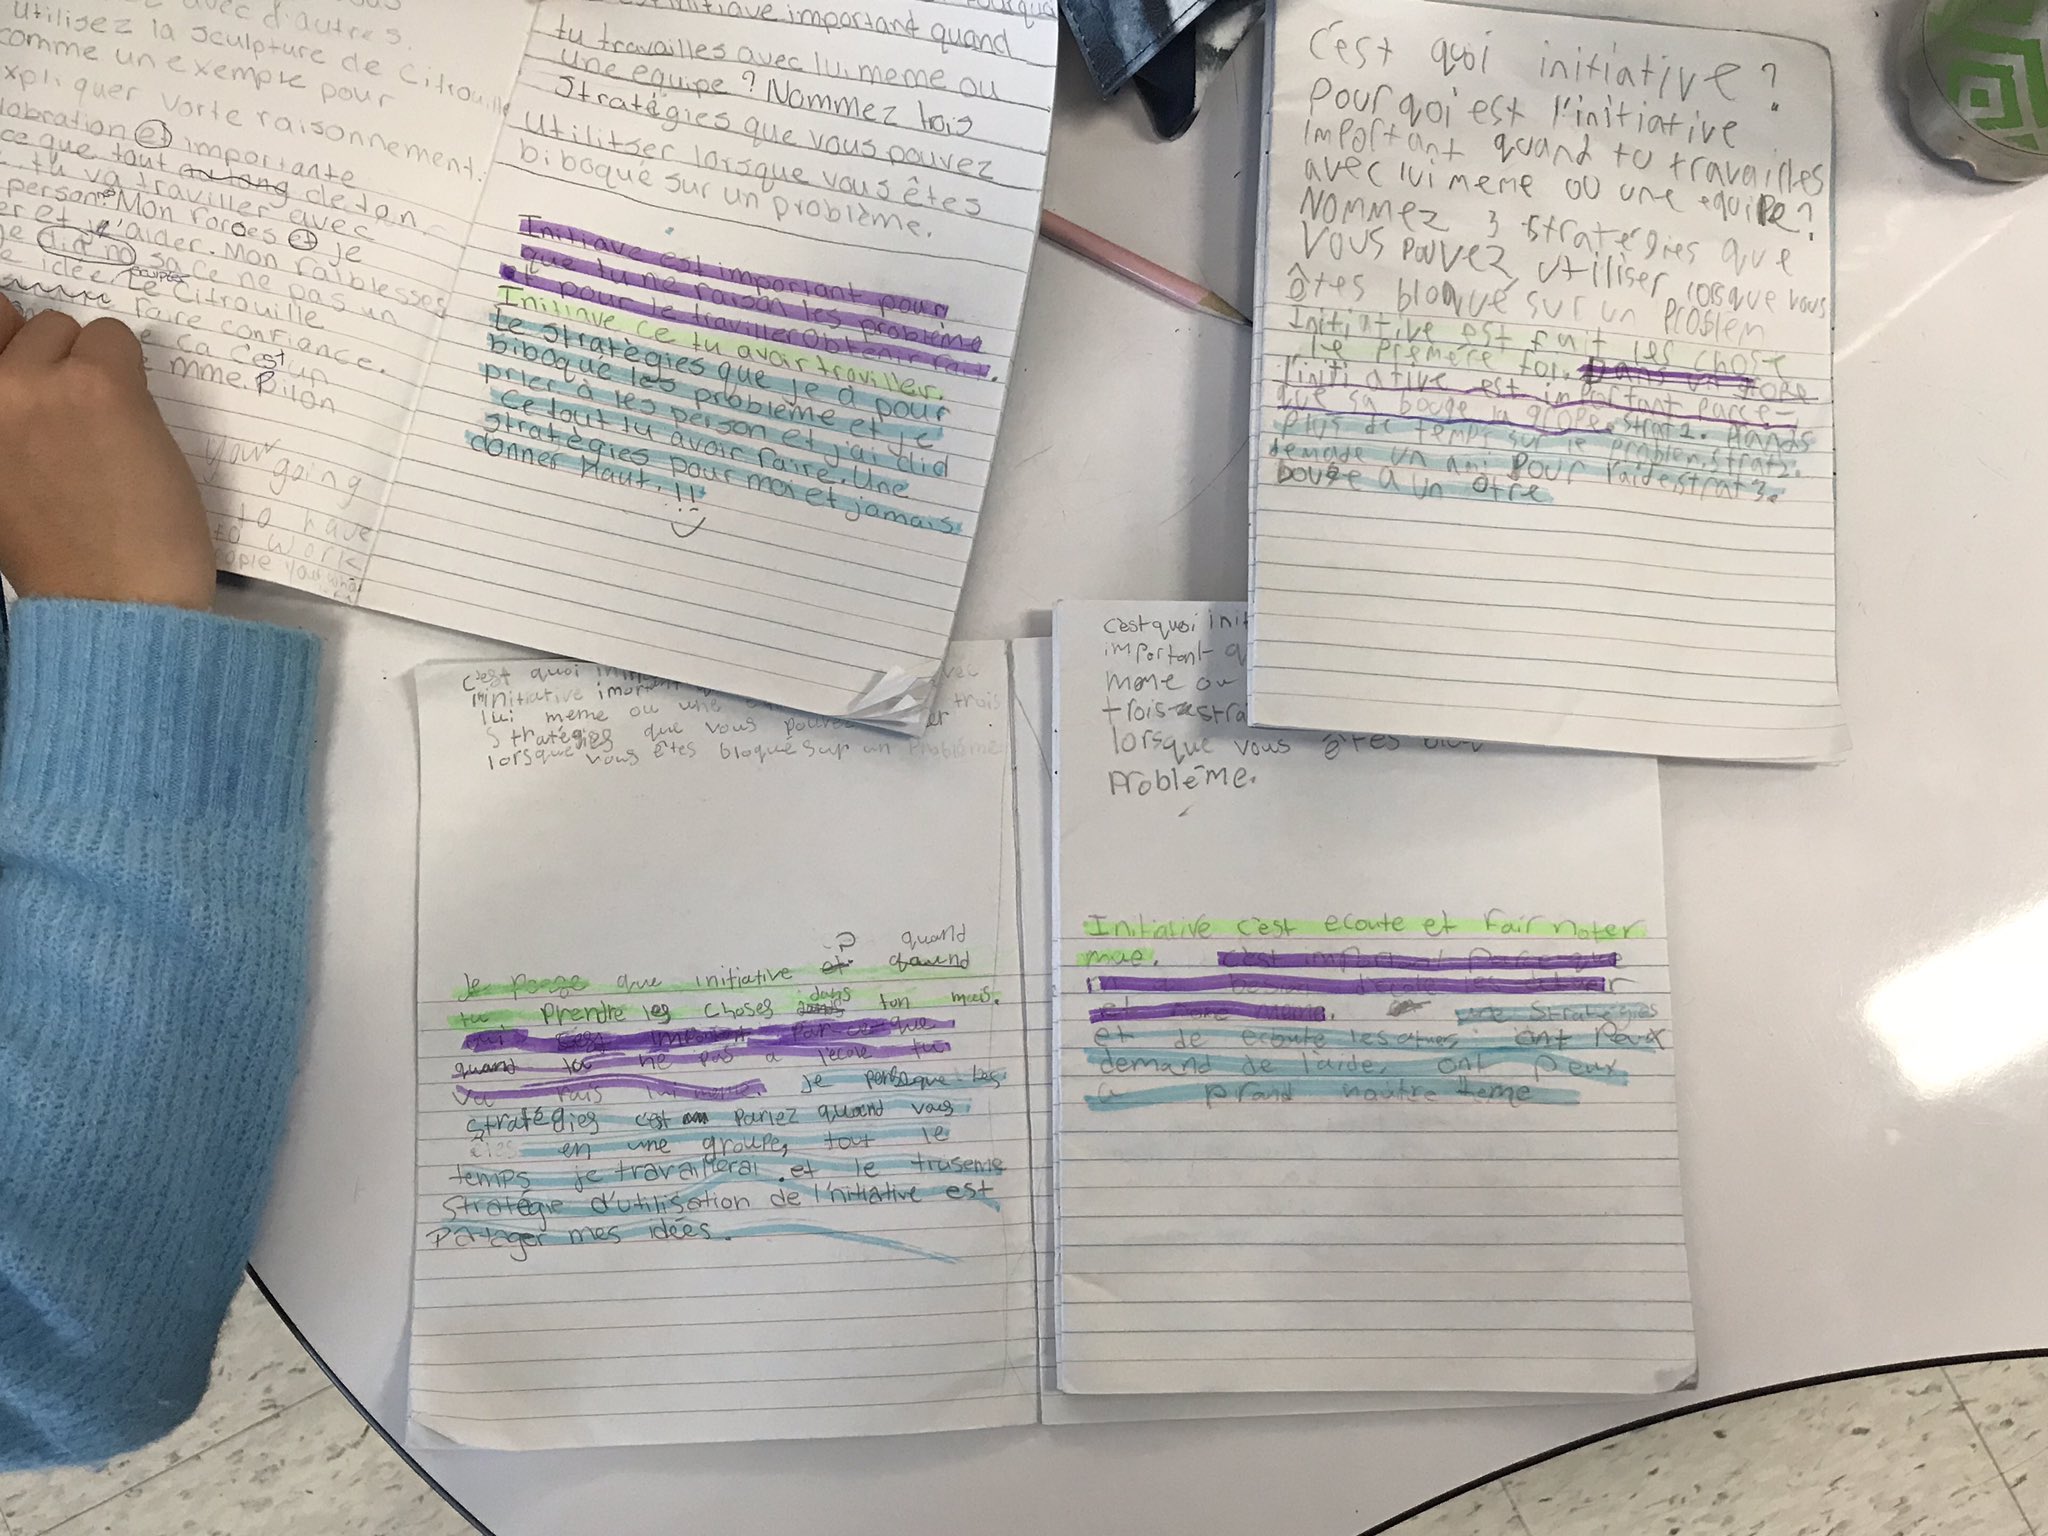 avec d'autres.
Utilisez la sculpture de Citrouille
comme un exemple pour
xpliquer vorte raisonnement.
laboration et importante
ce que tout de ton
tu va traviller avec
person. Mon forces et je
er et j'aider. Mon faiblesses
sa ce ne pas un
e idée. Le Citrouille
faire confiance.
e ca c'est un
mme. Bilon
your going
to have
to work
initiave important quand
tu travailles avec lui meme ou
une equipe? Nommez trois
Stratégies que vous pouvez
utilitser lorsque vous êtes
biboqué sur un problème.
Initiave est important pour
que tu ne raison les problème
et pour le traviller obtenir fait.
Initiave ce tu avair traviller.
Le Stratègies que je à pour
biboqué les problème et je
prier à les person et j'ai did
ce tout tu avoir faire. Une
stratégies pour moi et jamais
donner haut. !!
C'est quoi initiative?
Pourqoi est l'initiative
important quand tu travailles
avec lui meme ou une equipe?
Nommez 3 stratégies que
Vous pouvez utiliser lorsque vous
êtes bloqué sur un problem
Initiative est fait les chose
le premére foi. Dans un grope
l'initiative est important parce-
que sa bouge la grope. strat 1. Prands
plus de temps sur le problem. strat 2.
demade un ami pour l'aide strat 3.
bouge a un otre
c'est quoi
l'initiative imortant
lui meme ou une trois
Stratégies que vous pouvez
lorsque vous êtes bloqué sur un problème
? quand
Je panse que initiative et quaund
tu prendre les choses dans ton mais.
qui c'est important par ce que
quand tu ne pas a l'école tu
va fais lui meme. je pensque les
stratégies c'est parlez quand vous
êtes en une groupe, tout le
temps je travaillerai et le troiseme
stratégie d'utilisation de l'initiative est
patager mes idées.
c'est quoi init
important q
meme ou
trois stra
lorsque vous êtes
problème.
Initiative c'est ecoute et fair noter
mue. c'est important parce que
besoin
et. une Stratégies
et de ecoute les autres, ont peux
demand de l'aide, ont peux
prand nautre teme